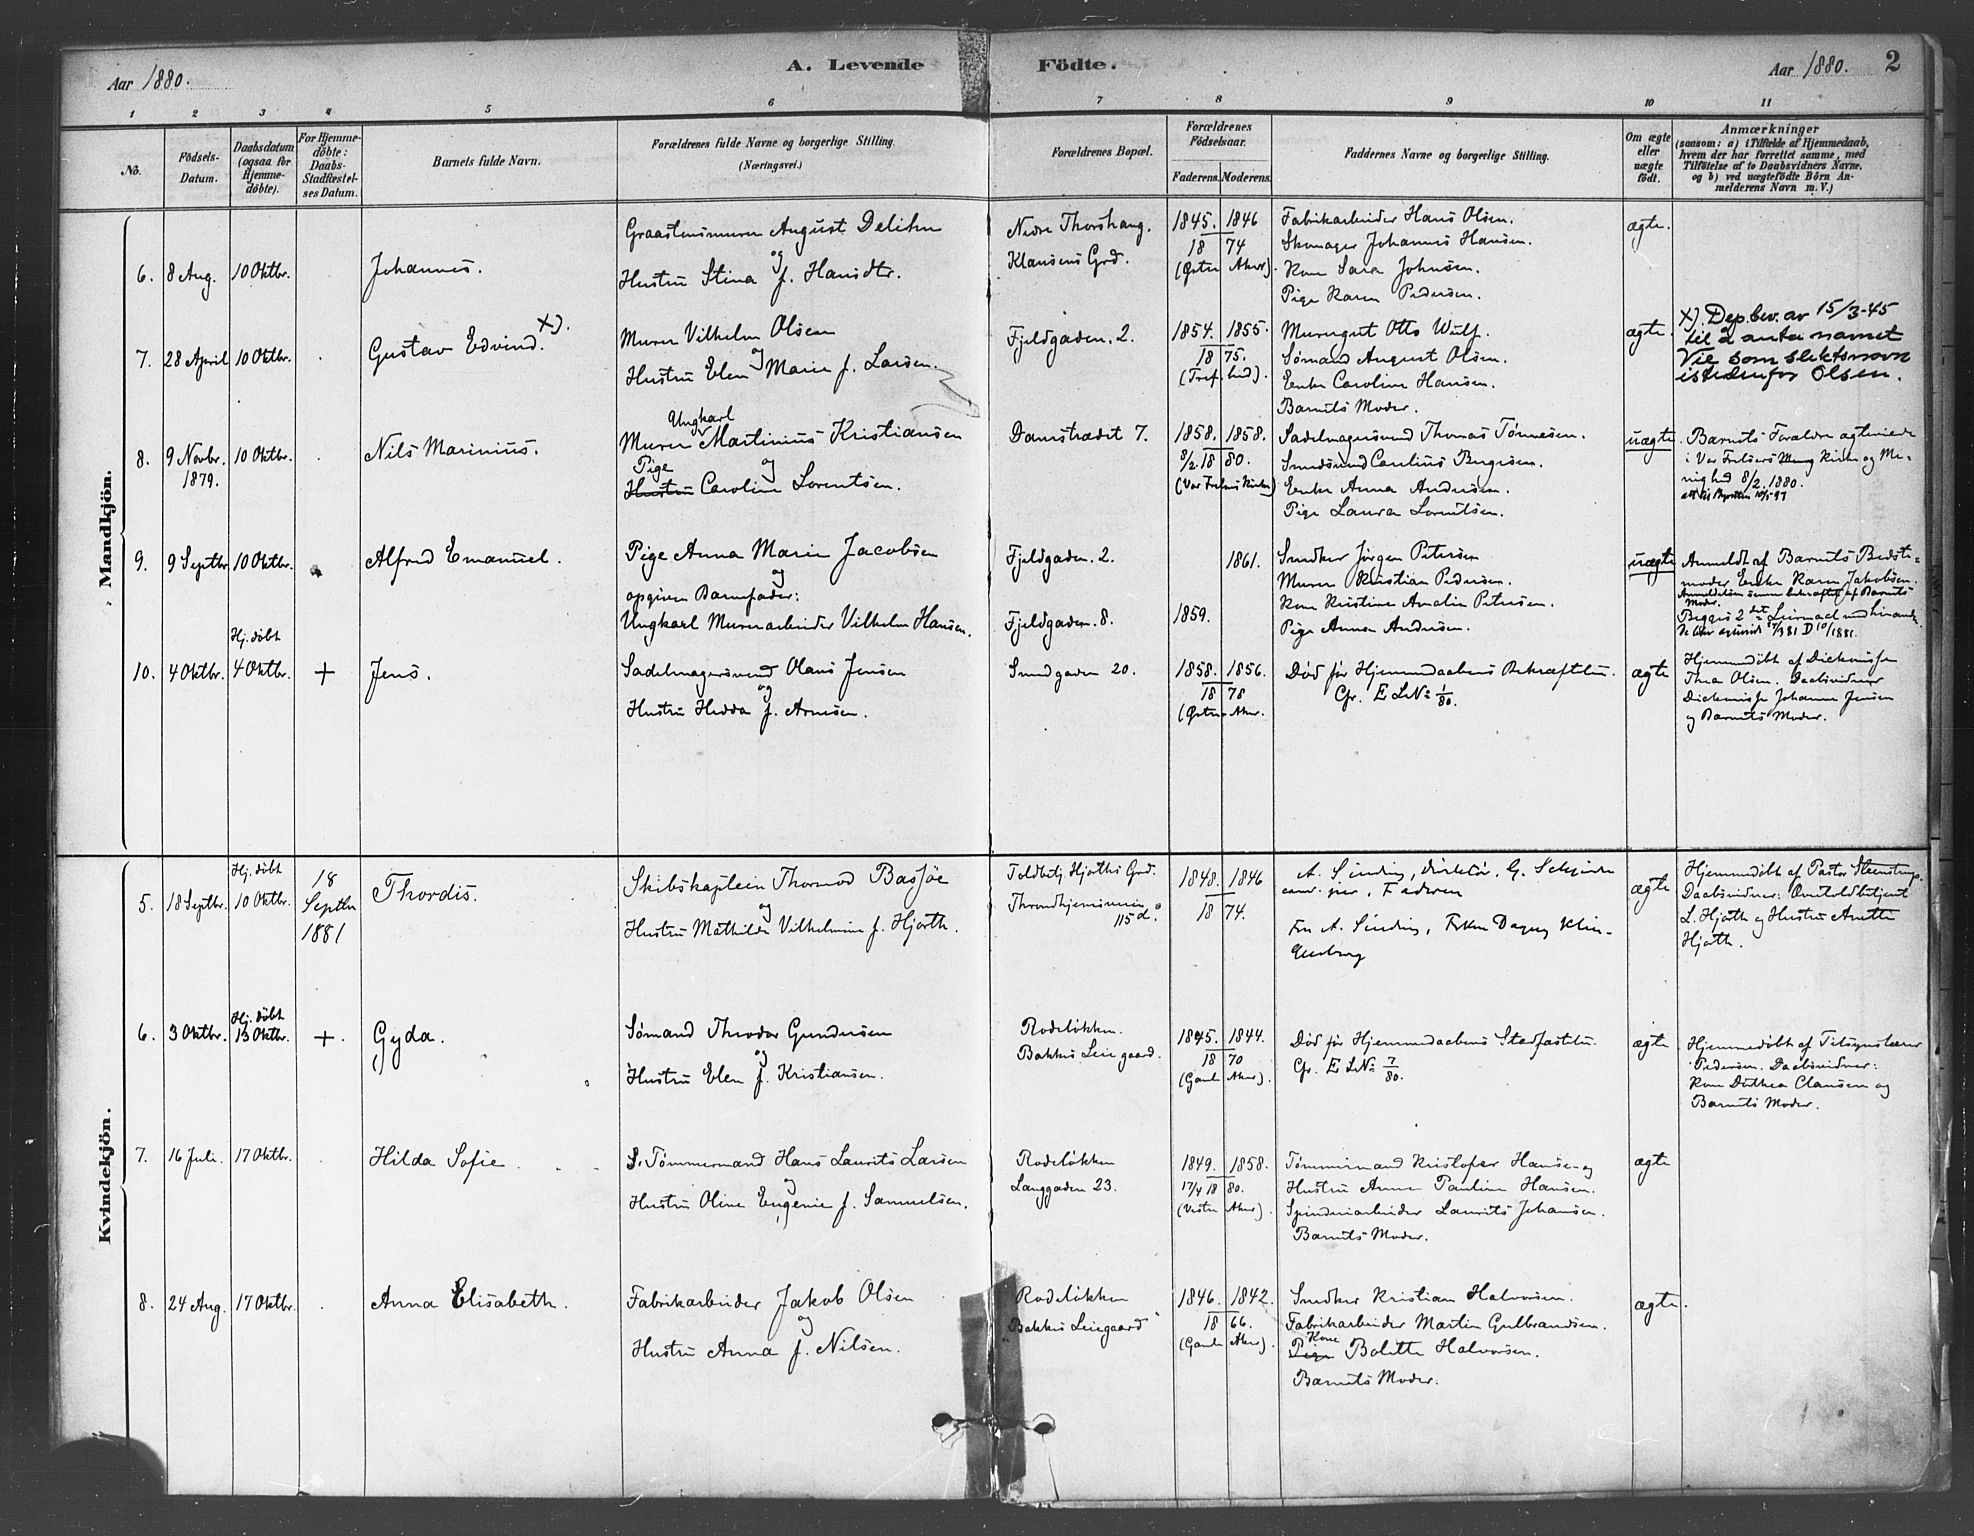 Aar 1880.
A. Levende Födte.
Aar 1880. 2
1 2 3 4 5 6 7 8 9 10 11
No.
Födsels-
Datum.
Daabsdatum
(ogsaa for
Hjemme-
döbte).
For Hjemme-
döbte:
Daabs-
Stadfæstel-
ses Datum.
Barnets fulde Navn.
Forældrenes fulde Navne og borgerlige Stilling
(Næringsvei.)
Forældrenes Bopæl.
Forældrenes
Födselsaar.
Faderens. Moderens.
Faddernes Navne og borgerlige Stilling.
Om ægte
eller
uægte
födt.
Anmærkninger
(saasom: a) i Tilfælde af Hjemmedaab,
hvem der har forrettet samme, med
Tilföielse af to Daabsvidners Navne.
og b) ved uægtefödte Börn An-
melderens Navn m. V.)
Mandkjön.
6. 8 Aug. 10 Oktbr.
Johannes.
Graastensmurer August Delihn
og
Hustru Stina f. Hansdtr.
Nedre Thorshaug.
Klausens Grd.
1845. 1846
18 74
(Østre Aker).
Fabrikarbeider Hans Olsen.
Skomager Johannes Hansen.
Kone Sara Johnsen.
Pige Karen Pedersen.
ægte.
7. 28 April 10 Oktbr.
Gustav Edvind. x).
Murer Vilhelm Olsen
og
Hustru Elen Marie f. Larsen.
Fjeldgaden. 2.
1854. 1855.
18 75.
(Tref. hed).
Murergut Otto Wulf.
Sømand August Olsen.
Enke Caroline Hansen.
Barnets Moder.
ægte.
x). Dep. bev. av 15/3-45
til å anta navnet
Vie som slektsnavn
istedenfor Olsen.
8. 9 Novbr. 1879. 10 Oktbr.
Nils Marinius.
Ungkarl
Murer Martinius Kristiansen
Pige og
Hustru Caroline Lorentsen.
Damstrædet 7.
1858. 1858.
8/2. 18 80.
(Vor Frelsers Kirke)
Sadelmagersvend Thomas Tønnesen.
Smedsvend Carelius Bergersen.
Enke Anna Andersen.
Pige Laura Lorentsen.
uægte.
Barnets Forældre ægteviede
i Vor Frelsers Kirke og Me-
nighed 8/2. 1880.
9. 9 Septbr 10 Oktbr.
Alfred Emanuel.
Pige Anna Marie Jacobsen
og
opgiven Barnefader:
Ungkarl Murerarbeider Vilhelm Hansen.
Fjeldgaden. 2.
Fjeldgaden. 8.
1861.
1859.
Snedker Jørgen Petersen
Murer Kristian Pedersen.
Kone Kristine Amalie Petersen.
Pige Anna Andersen.
uægte
Anmeldt af Barnets Bedste-
moder Enke Karen Jakobsen.
Anmeldelsen senere bekræftet af Barnets
Moder.
Begges 2det Leiermaal
10. 4 Oktbr. Hj. døbt 4 Oktbr. +
Jens.
Sadelmagersvend Olaus Jensen
og
Hustru Hedda f. Arnesen.
Smedgaden 20.
1858. 1856.
18 78
(Østre Aker.
Død før Hjemmedaabens Bekræftelse.
Cfr. E L№ 1/80.
ægte
Hjemmedøbt af Diekonisse
Thea Olsen. Daabsvidner
Diekonisse Johanne Jensen
og Barnets Moder.
Kvindekjön.
5. 18 Septbr. Hj. døbt 10 Oktbr. 18 Septbr 1881
Thordis.
Skibskaptein Thormod Bassøe
og
Hustru Mathilde Vilhelmine f. Hjorth.
Toldbetj. Hjorths Grd.
Throndhjemsveien
115 d.
1848. 1846
18 74.
A. Sinding, direktør, G.
jur., Faderen
Fru A. Sinding, Frken Dagny Klin-
genberg
ægte
Hjemmedøbt af Pastor Steenstrup.
Daabsvidner: Overtoldbetjent
L. Hjorth og Hustru Anette
Hjorth.
6. 3 Oktbr. Hj. døbt 13 Oktbr. +.
Gyda.
Sømand Theodor Gundersen
og
Hustru Elen f. Kristiansen.
Rodeløkken.
Bakkes Leiegaard.
1845. 1844.
18 70
(Gamle Aker).
Død før Hjemmedaabens Stadfæstelse.
Cfr. E L№ 7/80.
ægte
Hjemmedøbt af Tilsynslærer
Pedersen. Daabsvidner:
Kone Dothea Clausen og
Barnets Moder.
7. 16 Juli. 17 Oktbr.
Hilda Sofie.
S. Tømmermand Hans Laurits Larsen
og
Hustru Oline Eugenie f. Samuelsen.
Rodeløkken
Langgaden 23.
1849. 1858.
17/4 18 80.
(Vestre Aker).
Tømmermand Kristofer Hansen og
Hustru Anne Pauline Hansen.
Spinderiarbeider Laurits Johansen.
Barnets Moder.
ægte
8. 24 Aug. 17 Oktbr.
Anna Elisabeth.
Fabrikarbeider Jakob Olsen
og
Hustru Anna f. Nilsen.
Rodeløkken
"Bakkes Leiegaard"
1846. 1842.
18 66.
(Gamle Aker).
Snedker Kristian Halvorsen.
Fabrikarbeider Martin Gulbrandsen.
Kone
Pige Bolette Halvorsen.
Barnets Moder.
ægte.